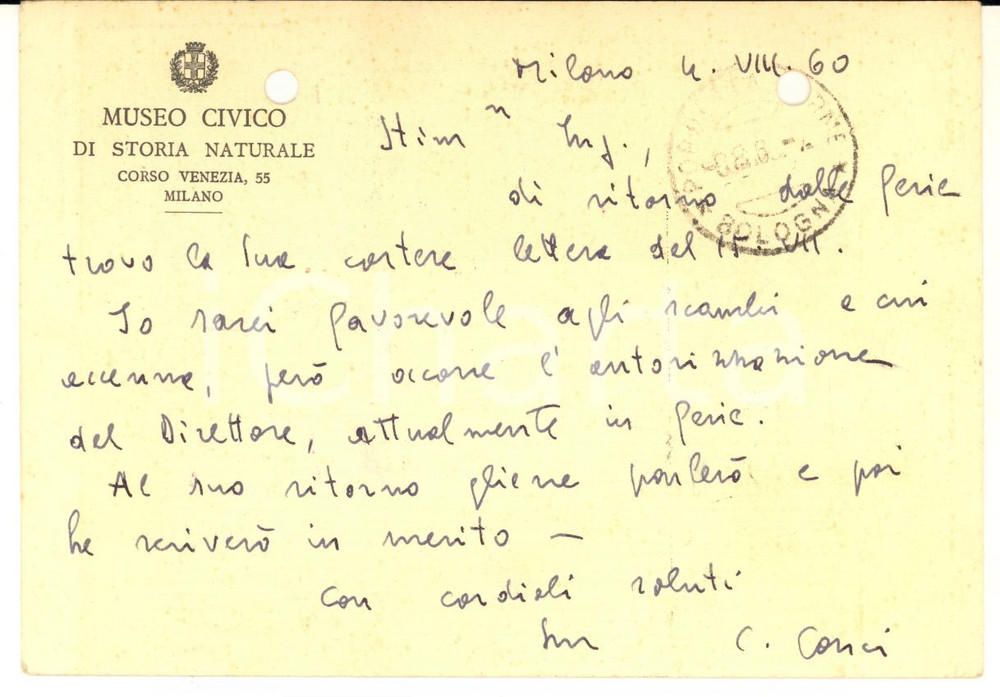 MUSEO CIVICO
DI STORIA NATURALE
CORSO VENEZIA, 55
MILANO
Milano 4. VIII. 60
Stim n Ing.,
di ritorno dalle ferie
trovo la Sua cortese lettera del 15. VII.
Io sarei favorevole agli scambi a cui
accenna, però occorre l'autorizzazione
del Direttore, attualmente in ferie.
Al suo ritorno gliene parlerò e poi
Le scriverò in merito —
Con cordiali saluti
Suo C. Conci
BOLOGNA
iCharta